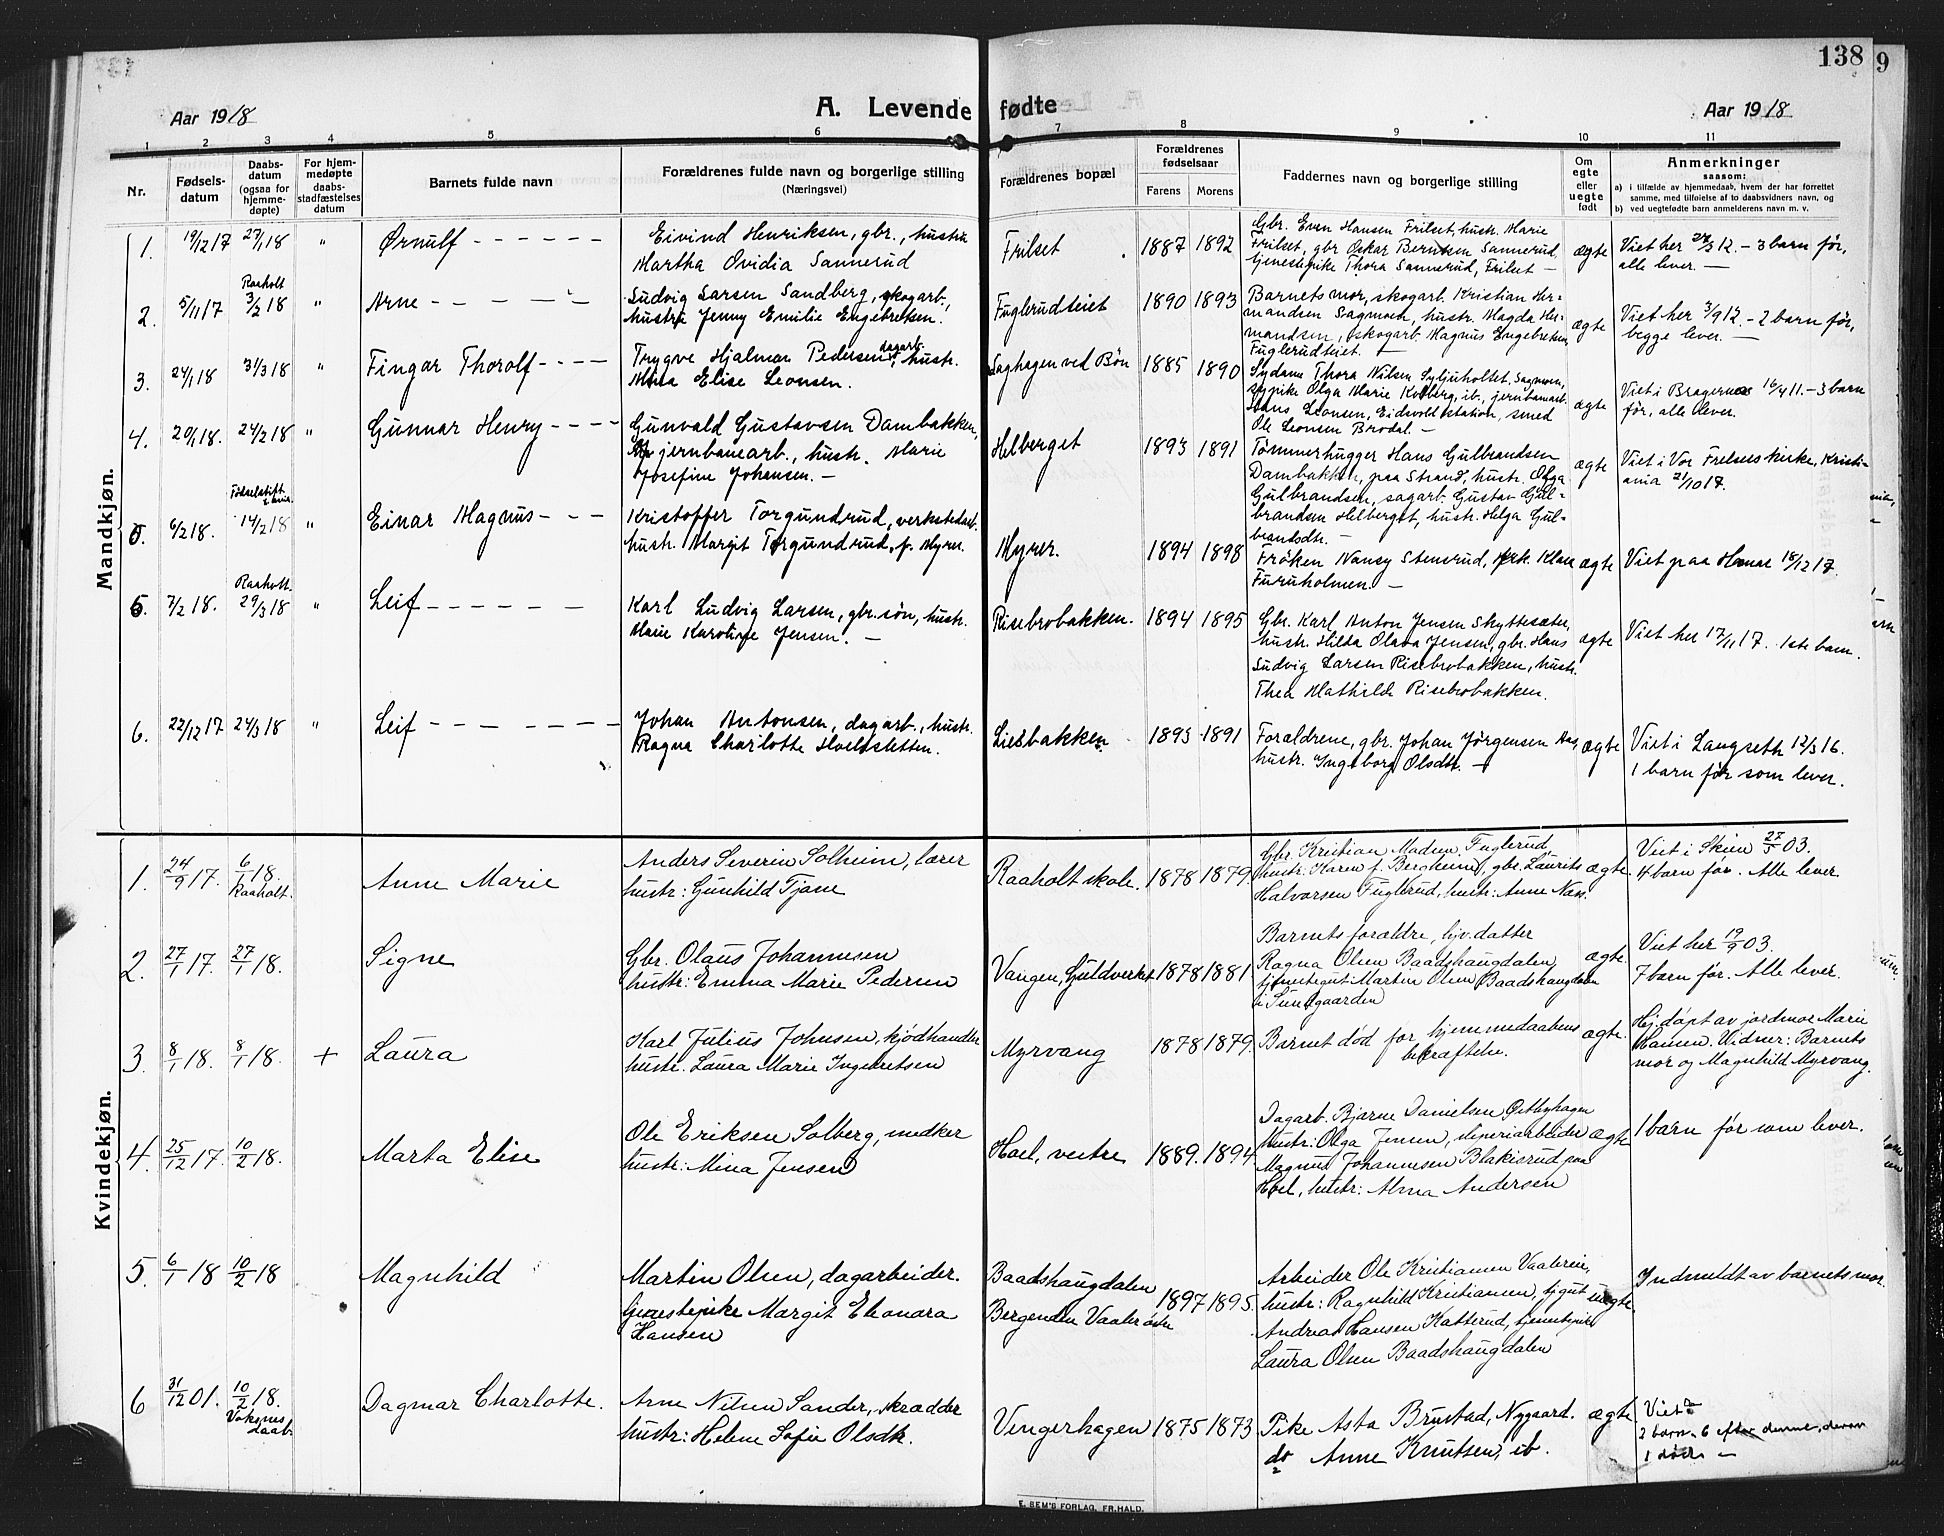 138
9
Aar 1918
A. Levende fødte
Aar 1918
1 2 3 4 5 6 7 8 9 10 11
Nr.
Fødsels-
datum
Daabs-
datum
(ogsaa for
hjemme-
døpte)
For hjem-
medøpte
daabs-
stadfæstelses
datum
Barnets fulde navn
Forældrenes fulde navn og borgerlige stilling
(Næringsvei)
Forældrenes bopæl
Forældrenes
fødselsaar
Farens
Morens
Faddernes navn og borgerlige stilling
Om
egte
eller
uegte
født
Anmerkninger
saasom:
a) i tilfælde av hjemmedaab, hvem der har forrettet
samme, med tilføielse af to daabsvidners navn, og
b) ved uegtefødte barn anmelderens navn m. v.
Mandkjøn.
1. 19/12 17 27/1 18 " Ørnulf
Eivind Henriksen, gbr., hustru
Martha Ovidia Sannerud
Frilset 1887 1892
Gbr. Even Hansen Frilset, hustr. Marie
Frilset, gbr Oskar Berntsen Sannerud,
tjenestepike Thora Sannerud, Frilset –
ægte
Viet her 12. – 3 barn før,
alle lever. –
2. 5/11 17 Raaholt 3/2 18 " Arne
Ludvig Larsen Sandberg, skogarb.,
hustru Jenny Emilie Engebretsen.
Fuglerudteiet 1890 1893
Barnets mor, skogarb. Kristian Her=
mandsen Sagmoen, hustr. Magda Her-
mandsen, skogarb. Magnus Engebretsen
Fuglerudteiet. –
ægte
Viet her 3/9 12. – 2 barn før,
begge lever. –
3. 24/1 18 31/3 18 " Fingar Thorolf
Trygve Hjalmar Pedersen, dagarb., hustr.
Elise Leonsen.
Saghagen ved Bøn 1885 1890
Sydame Thora Nilsen Syljuholtet, Sagmoen,
Olga Marie Kolberg, ib., jernbanearb.
Hans Leonsen, Eidsvold station, smed
Ole Leonsen Brodal. –
ægte
Viet i Bragernes 16/4 11. – 3 barn
før, alle lever.
4. 20/1 18. 24/2 18 " Gunnar Henry
Gunvald Gustavsen Dambakken,
jernbanearb., hustr. Marie
Josefine Johansen. –
Helberget 1893 1891
Tømmerhugger Hans Gulbrandsen
Dambakken, paa Strand, hustr. Olga
Gulbrandsen, sagarb. Gustav Gul=
brandsen Helberget, hustr. Helga Gul=
brandsdtr. –
ægte
Viet i Vor Frelsers kirke, Kristi-
ania 21/10 17.
5. 6/2 18. Fødselsstift. 14/2 18 " Einar Magnus
Kristoffer Torgundrud, verkstedarb.
hustr. Margit Torgundrud, f. Myrer.
Myrer. 1894 1898
Frøken Nansy Stensrud, frk. Klara
Furuholmen. –
ægte
Viet paa Hamar 18/12 17.
5. 7/2 18. Raaholt. 29/3 18 " Leif
Karl Ludvig Larsen, gbr. søn, hustr.
Marie Karoline Jensen. –
Risebrobakken. 1894 1895
Gbr. Karl Anton Jensen Skyttesæter,
hustr. Hilda Olava Jensen, gbr. Hans
Ludvig Larsen Risebrobakken, hustr.
Thea Mathilde Risebrobakken.
ægte
Viet her 17/11 17. 1ste barn.
6. 22/12 17 24/3 18 " Leif
Johan Antonsen, dagarb., hustr.
Ragna Charlotte Hveltsletten.
Liesbakken 1893 1891
Forældrene, gbr. Johan Jørgensen
hustr. Ingeborg Olsdtr. –
ægte
Viet i Langseth 12/3 16.
1 barn før som lever.
Kvindekjøn.
1. 24/9 17. 6/1 18. Raaholt. Anne Marie
Anders Severin Solheim, lærer
hustr: Gunhild Tjane
Raaholt skole. 1878 1879.
Gbr. Kristian Madsen Fuglerud,
hustr: Karen f. Bergheim, gbr. Laurits
Halvorsen Fuglerud, hustr: Anne Næss.
ægte.
Viet i Skien 27/5 03.
4 barn før. Alle lever
2. 27/1 17. 27/1 18. Signe
Gbr. Olaus Johannesen
hustr: Emma Marie Pedersen
Vangen, Guldverket 1878 1881
Barnets forældre, hjv. datter
Ragna Olsen Baadshaugdalen
tjenestegut Martin Olsen Baadshaugdalen
i Sundgaarden
ægte.
Viet her 19/9 03.
7 barn før. Alle lever.
3. 8/1 18. 8/1 18. + Laura
Karl Julius Johnsen, kjødhandler
hustr. Laura Marie Ingebretsen
Myrvang 1878 1879.
Barnet død før hjemmedaabens
bekræftelse.
ægte.
Hj. døpt av jordmor Marie
Hansen. Vidner: Barnets
mor og Magnhild Myrvang.
4. 25/12 17. 10/2 18. Marta Elise
Ole Eriksen Solberg, snedker
hustr: Mina Jensen
Hoel, vestre 1889. 1894
Dagarb. Bjarne Danielsen Østbyhagen
hustr: Olga Jensen, sliperiarbeider
Magnus Johannesen Blakisrud paa
Hoel, hustr: Alma Andersen
ægte
1 barn før som lever.
5. 6/1 18 10/2 18 Magnhild
Martin Olsen, dagarbeider.
tjenestepike Margit Eleonora
Hansen
Baadshaugdalen
Bergendal Vaalerøsie 1897 1895.
Arbeider Ole Kristiansen Vaalerein,
hustr: Ragnhild Kristiansen, tjgut
Andreas Hansen Katterud, tjenestepike
Laura Olsen Baadshaugdalen
uægte.
Indmeldt av barnets mor.
6 31/12 01. 10/2 18. Voksnes daab. Dagmar Charlotte.
Arne Nilsen Sander, skrædder
hustr: Helene Sofie Olsdtr.
Vingerhagen 1875 1873
Pike Asta Brustad, Nygaard.
do Anne Knutsen, ib.
ægte
Viet ?
2 barn. 6 efter denne, derav
1 død. –
E. SEM'S FORLAG, FR.HALD.